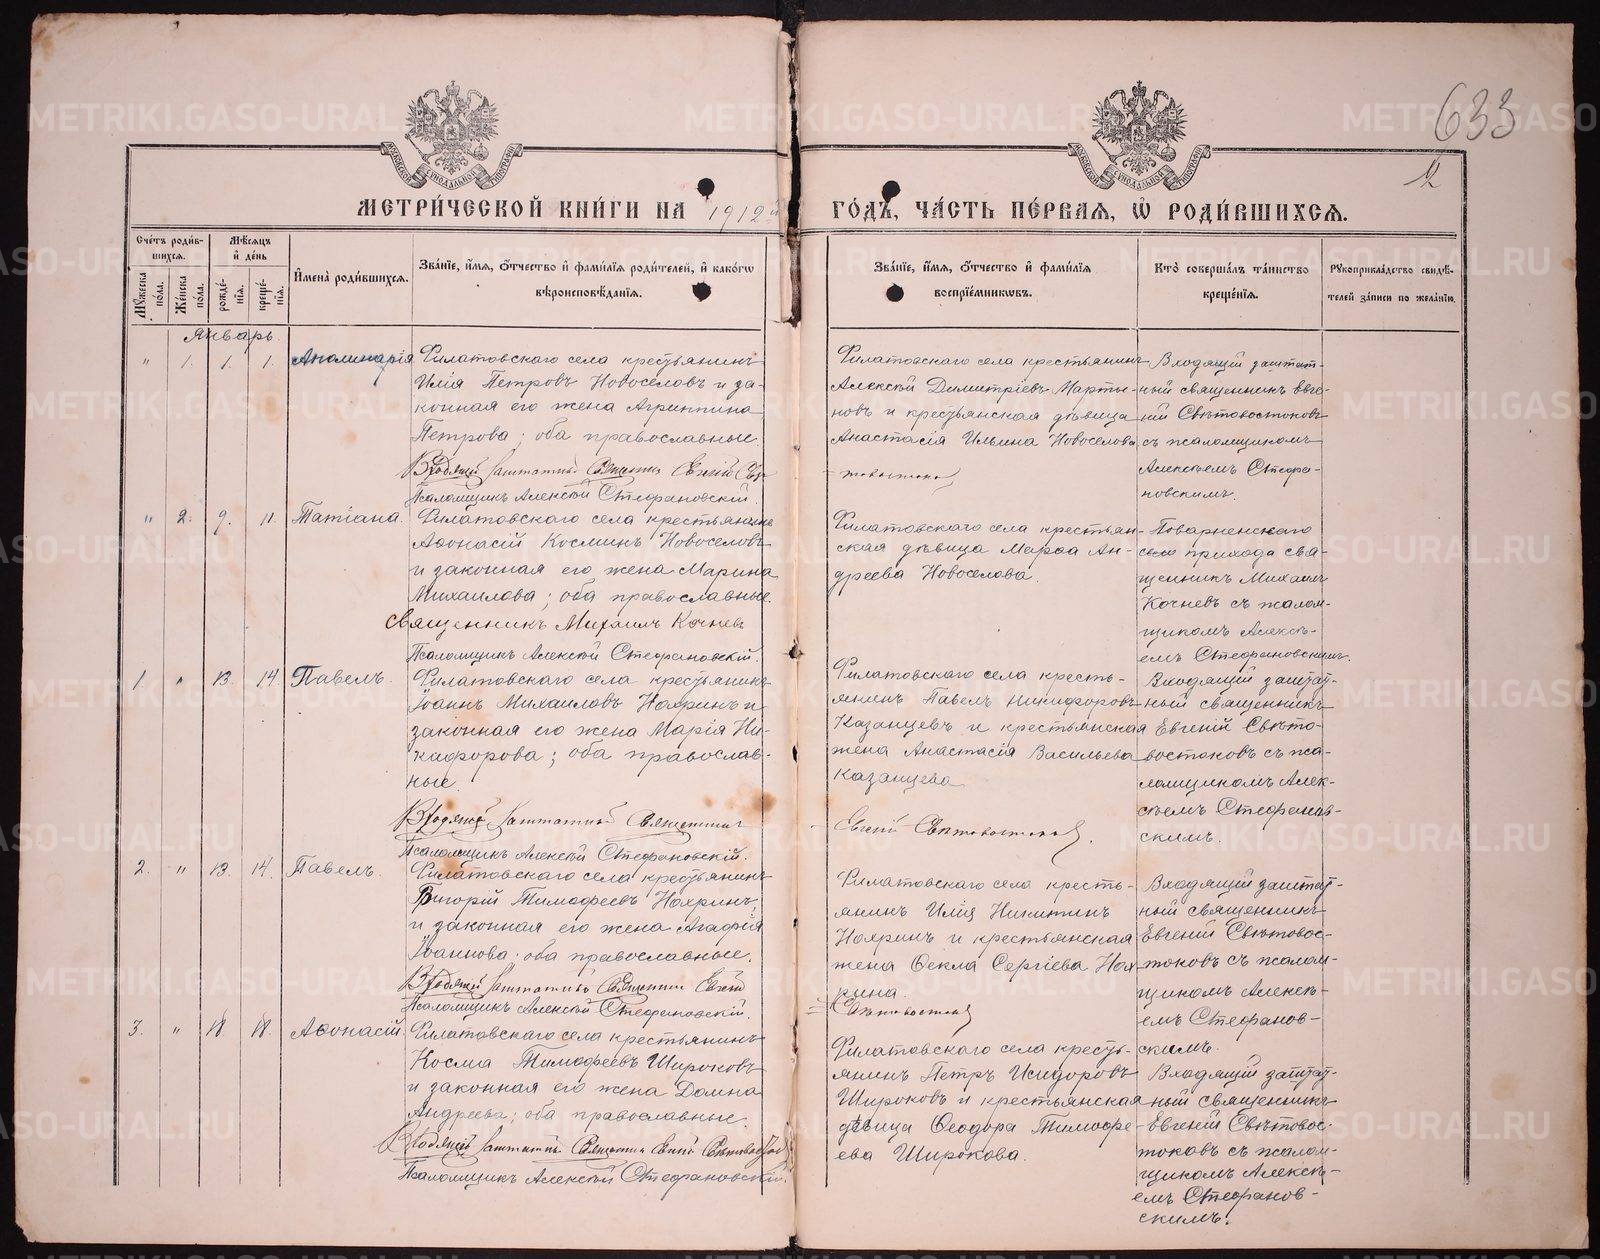 633
2
МОСКОВСКОЙ СѴНОДАЛЬНОЙ ТИПОГРАФІИ
МОСКОВСКОЙ СѴНОДАЛЬНОЙ ТИПОГРАФІИ
МЕТРИ́ЧЕСКОЙ КНИ́ГИ НА 1912й ГО́ДЪ, ЧА́СТЬ ПЕ́РВАѦ, Ѡ҆ РОДИ́ВШИХСѦ.
Сче́тъ роди́в-
шихсѧ.
Мѣ́сѧцъ
и҆ де́нь
Мꙋ́жеска по́ла.
Же́нска по́ла.
рожде́-
нїѧ.
креще́-
нїѧ.
И҆мена̀ роди́вшихсѧ.
Зва́нїе, и҆́мѧ, ѻ҆́тчество и҆ фами́лїѧ роди́телей, и҆ како́гѡ
вѣроисповѣ́данїѧ.
Зва́нїе, и҆́мѧ, ѻ҆́тчество и҆ фами́лїѧ
воспрїе́мникѡвъ.
Кто̀ соверша́лъ та́инство
креще́нїѧ.
Рꙋкоприкла́дство свидѣ́-
телей за́писи по жела́нїю.
Январь.
" 1. 1. 1. Аполинарія
Филатовскаго села крестьянинъ
Илія Петровъ Новоселовъ и за-
конная его жена Агриппина
Петрова; оба православные.
Входящій заштатный Священник Евгеній Свѣ-
Псаломщикъ Алексѣй Стефановскій.
Филатовскаго села крестьянинъ
Алексѣй Димитріевъ Марты-
новъ и крестьянская дѣвица
Анастасія Ильина Новоселова
товостоков
Входящій заштат-
ный священникъ Евге-
ній Свѣтовостоковъ
съ псаломщикомъ
Алексѣемъ Стефа-
новскимъ.
" 2. 9. 11. Татіана.
Филатовскаго села крестьянинъ
Аѳонасій Косминъ Новоселовъ
и законная его жена Марина
Михаилова; оба православные.
Священникъ Михаилъ Кочневъ
Псаломщикъ Алексѣй Стефановскій.
Филатовскаго села крестьян-
ская дѣвица Марѳа Ан-
дреева Новоселова.
Поварненскаго
села прихода свя-
щенникъ Михаилъ
Кочневъ съ псалом-
щикомъ Алексѣ-
емъ Стефановскимъ.
1. " 13. 14. Павелъ.
Филатовскаго села крестьянинъ
Іоаннъ Михаиловъ Нохринъ и
законная его жена Марія Ни-
кифорова; оба православ-
ные.
Входящій заштатный Священник
Псаломщикъ Алексѣй Стефановскій.
Филатовскаго села кресть-
янинъ Павелъ Никифоровъ
Казанцевъ и крестьянская
жена Анастасія Васильева
Казанцева
Евгеній Свѣтовостоков.
Входящій заштат-
ный священникъ
Евгеній Свѣто-
востоковъ съ пса-
ломщикомъ Алек-
сѣемъ Стефанов-
скимъ.
2. " 13. 14. Павелъ.
Филатовскаго села крестьянинъ
Григорій Тимофеевъ Нохринъ,
и законная его жена Агафія
Іоаннова; оба православные.
Входящій заштатный Священник Евгеній
Псаломщикъ Алексѣй Стефановскій.
Филатовскаго села кресть-
янинъ Илія Никитинъ
Нохринъ и крестьянская
жена Ѳекла Сергіева Нох-
рина.
Свѣтовостоков
Входящій заштат-
ный священникъ
Евгеній Свѣтовос-
токовъ съ псалом-
щикомъ Алексѣ-
емъ Стефанов-
скимъ.
3. " 18. 18. Аѳонасій
Филатовскаго села крестьянинъ
Косма Тимофеевъ Широковъ
и законная его жена Домна
Андреева; оба православные.
Входящій заштатный Священник Евгеній Свѣтовостоков
Псаломщикъ Алексѣй Стефановскій.
Филатовскаго села кресть-
янинъ Петръ Исидоровъ
Широковъ и крестьянская
дѣвица Ѳеодора Тимофе-
ева Широкова.
Входящій заштат-
ный священникъ
Евгеній Свѣтовос-
токовъ съ псалом-
щикомъ Алексѣ-
емъ Стефанов-
скимъ.
METRIKI.GASO-URAL.RU